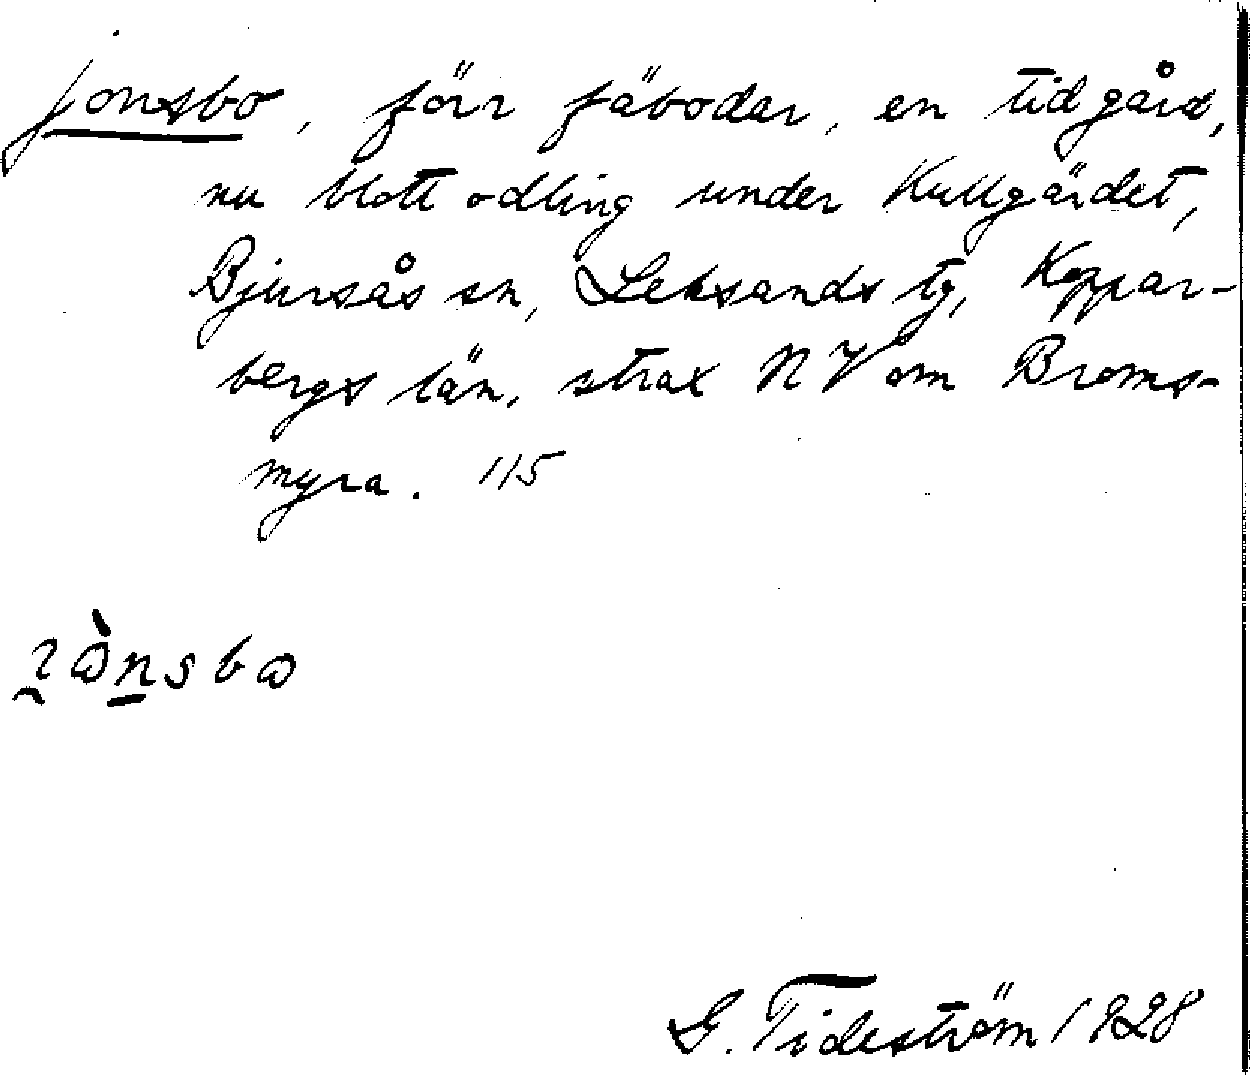 Jonsbo, förr fäbodar, en tid gård,
nu blott odling under Kullgärdet,
Bjursås sn, Leksands tg, Koppar-
bergs län, strax NV om Broms-
myra. 115
G. Tideström 1928